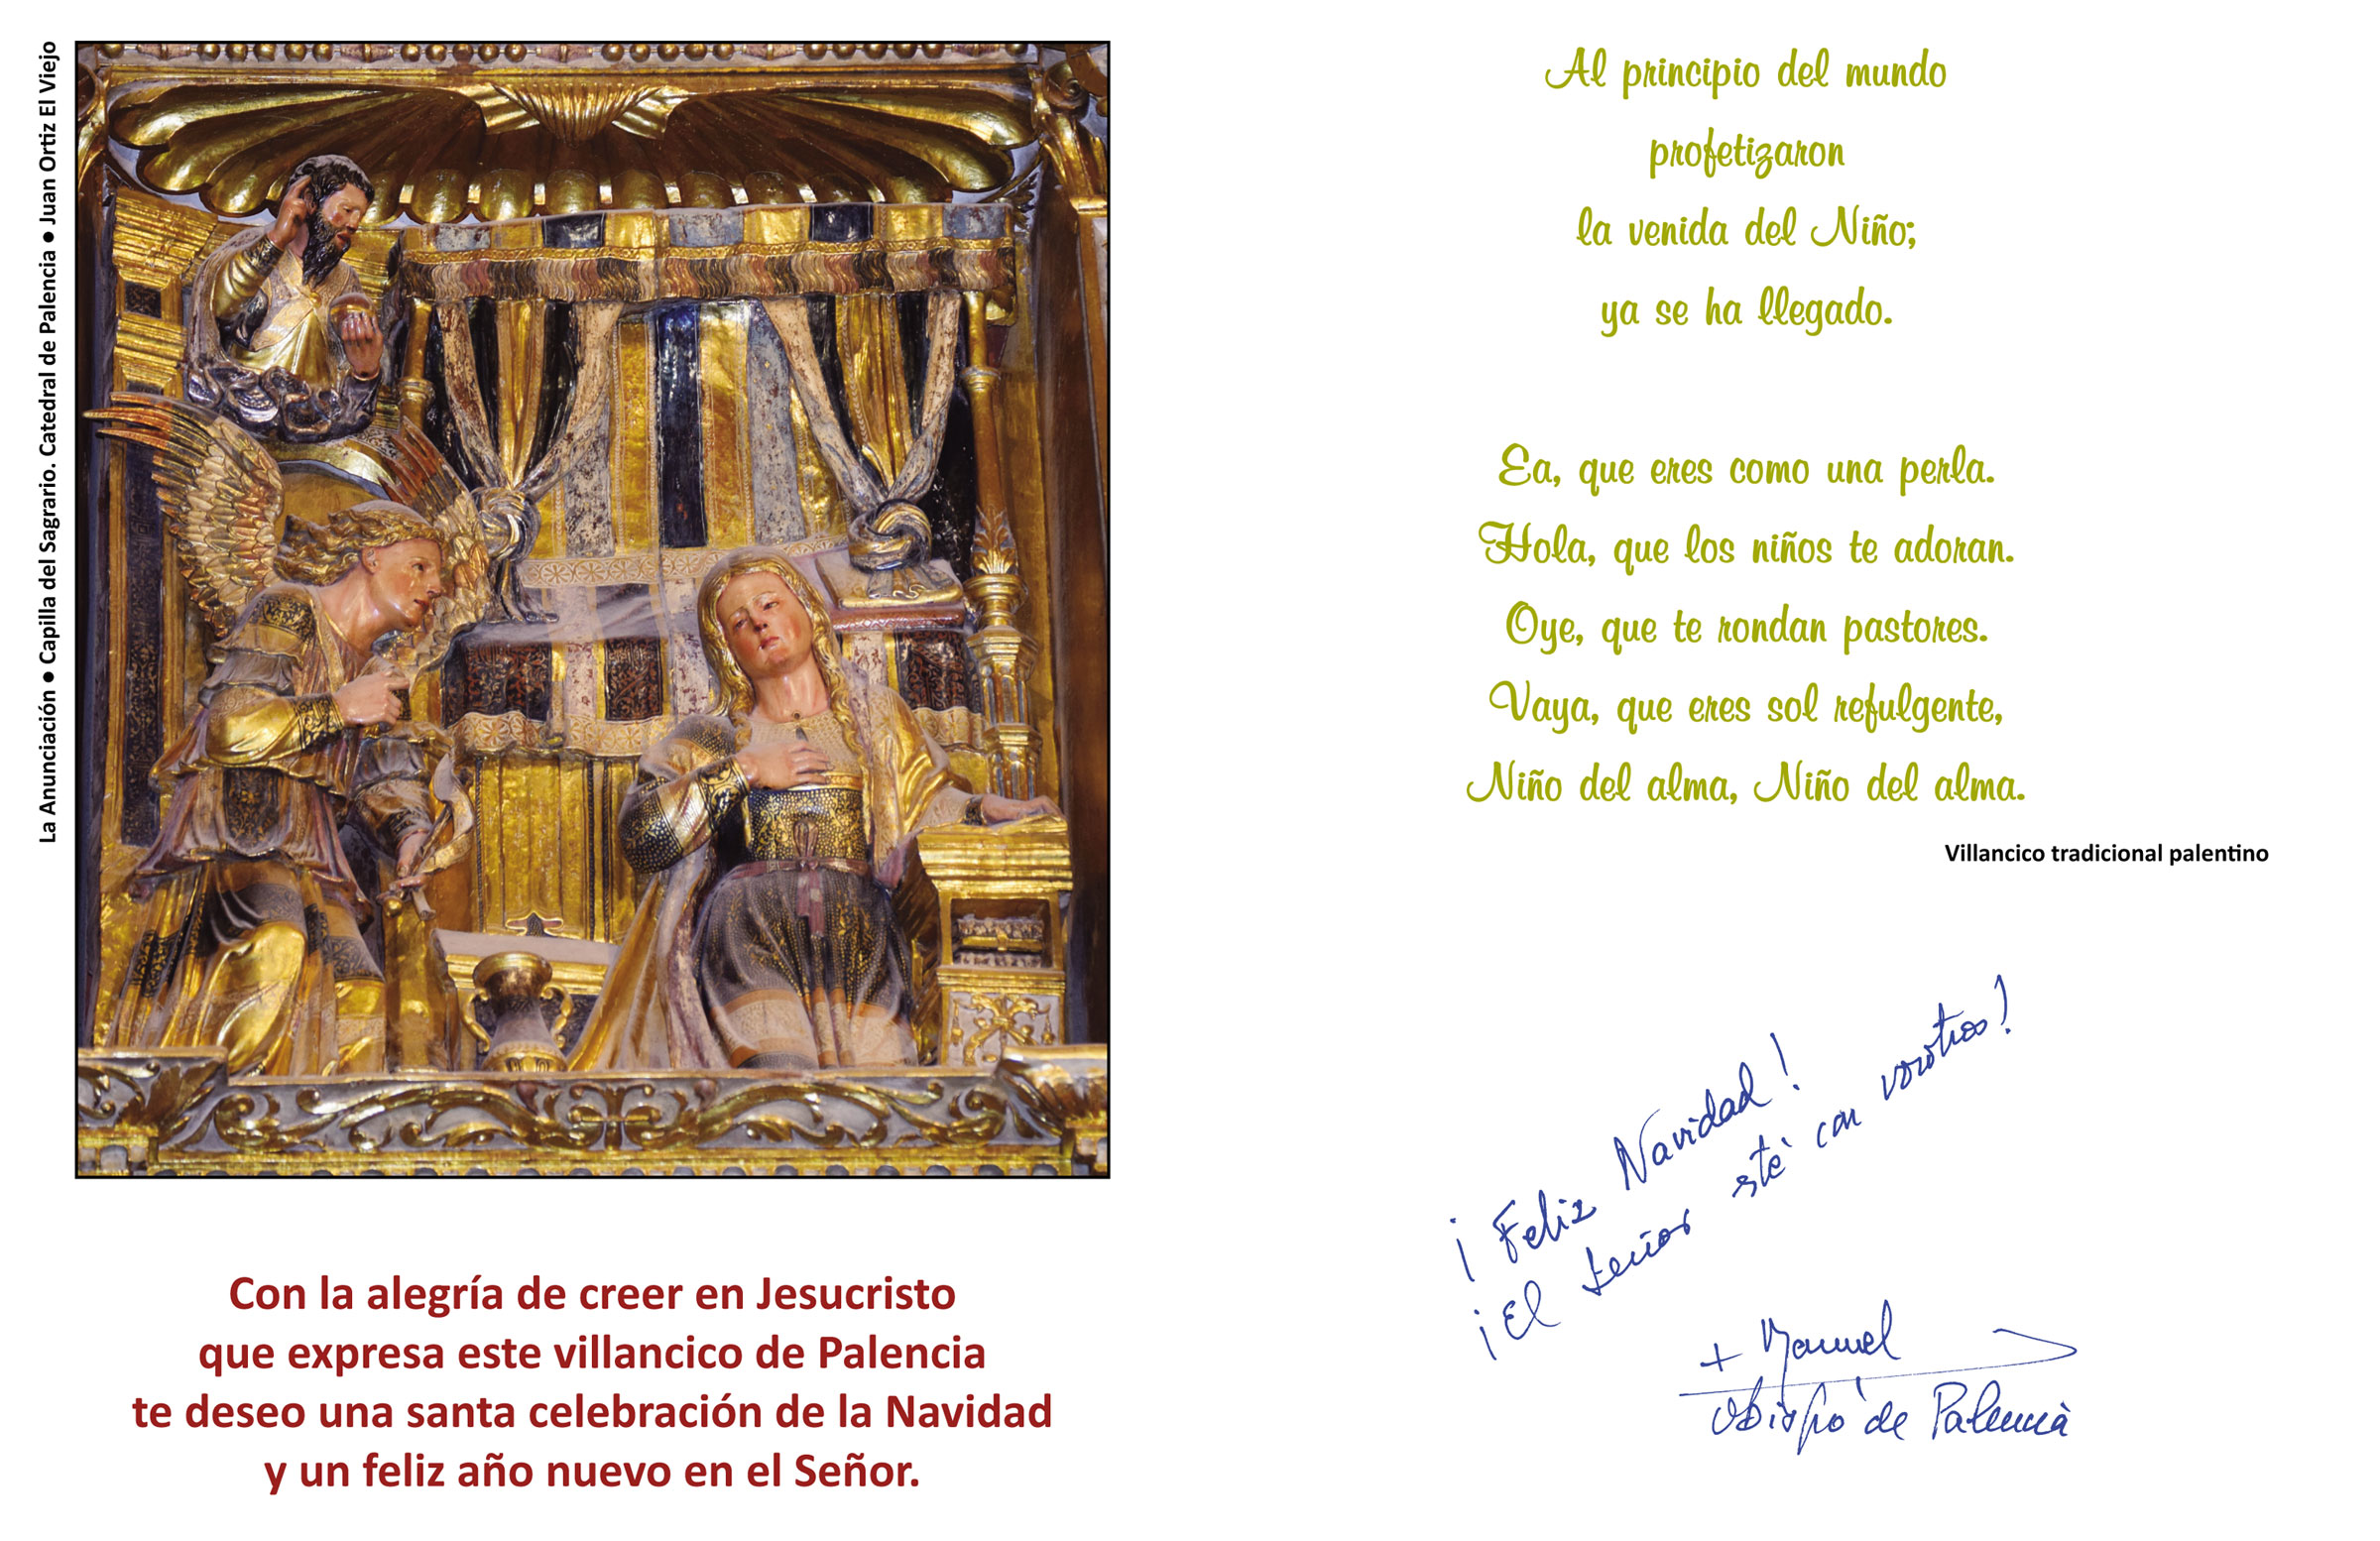 La Anunciación ● Capilla del Sagrario. Catedral de Palencia ● Juan Ortiz El Viejo
Con la alegría de creer en Jesucristo
que expresa este villancico de Palencia
te deseo una santa celebración de la Navidad
y un feliz año nuevo en el Señor.
Al principio del mundo
profetizaron
la venida del Niño;
ya se ha llegado.
Ea, que eres como una perla.
Hola, que los niños te adoran.
Oye, que te rondan pastores.
Vaya, que eres sol refulgente,
Niño del alma, Niño del alma.
Villancico tradicional palentino
¡Feliz Navidad!
¡El Señor esté con vosotros!
+ Manuel
Obispo de Palencia